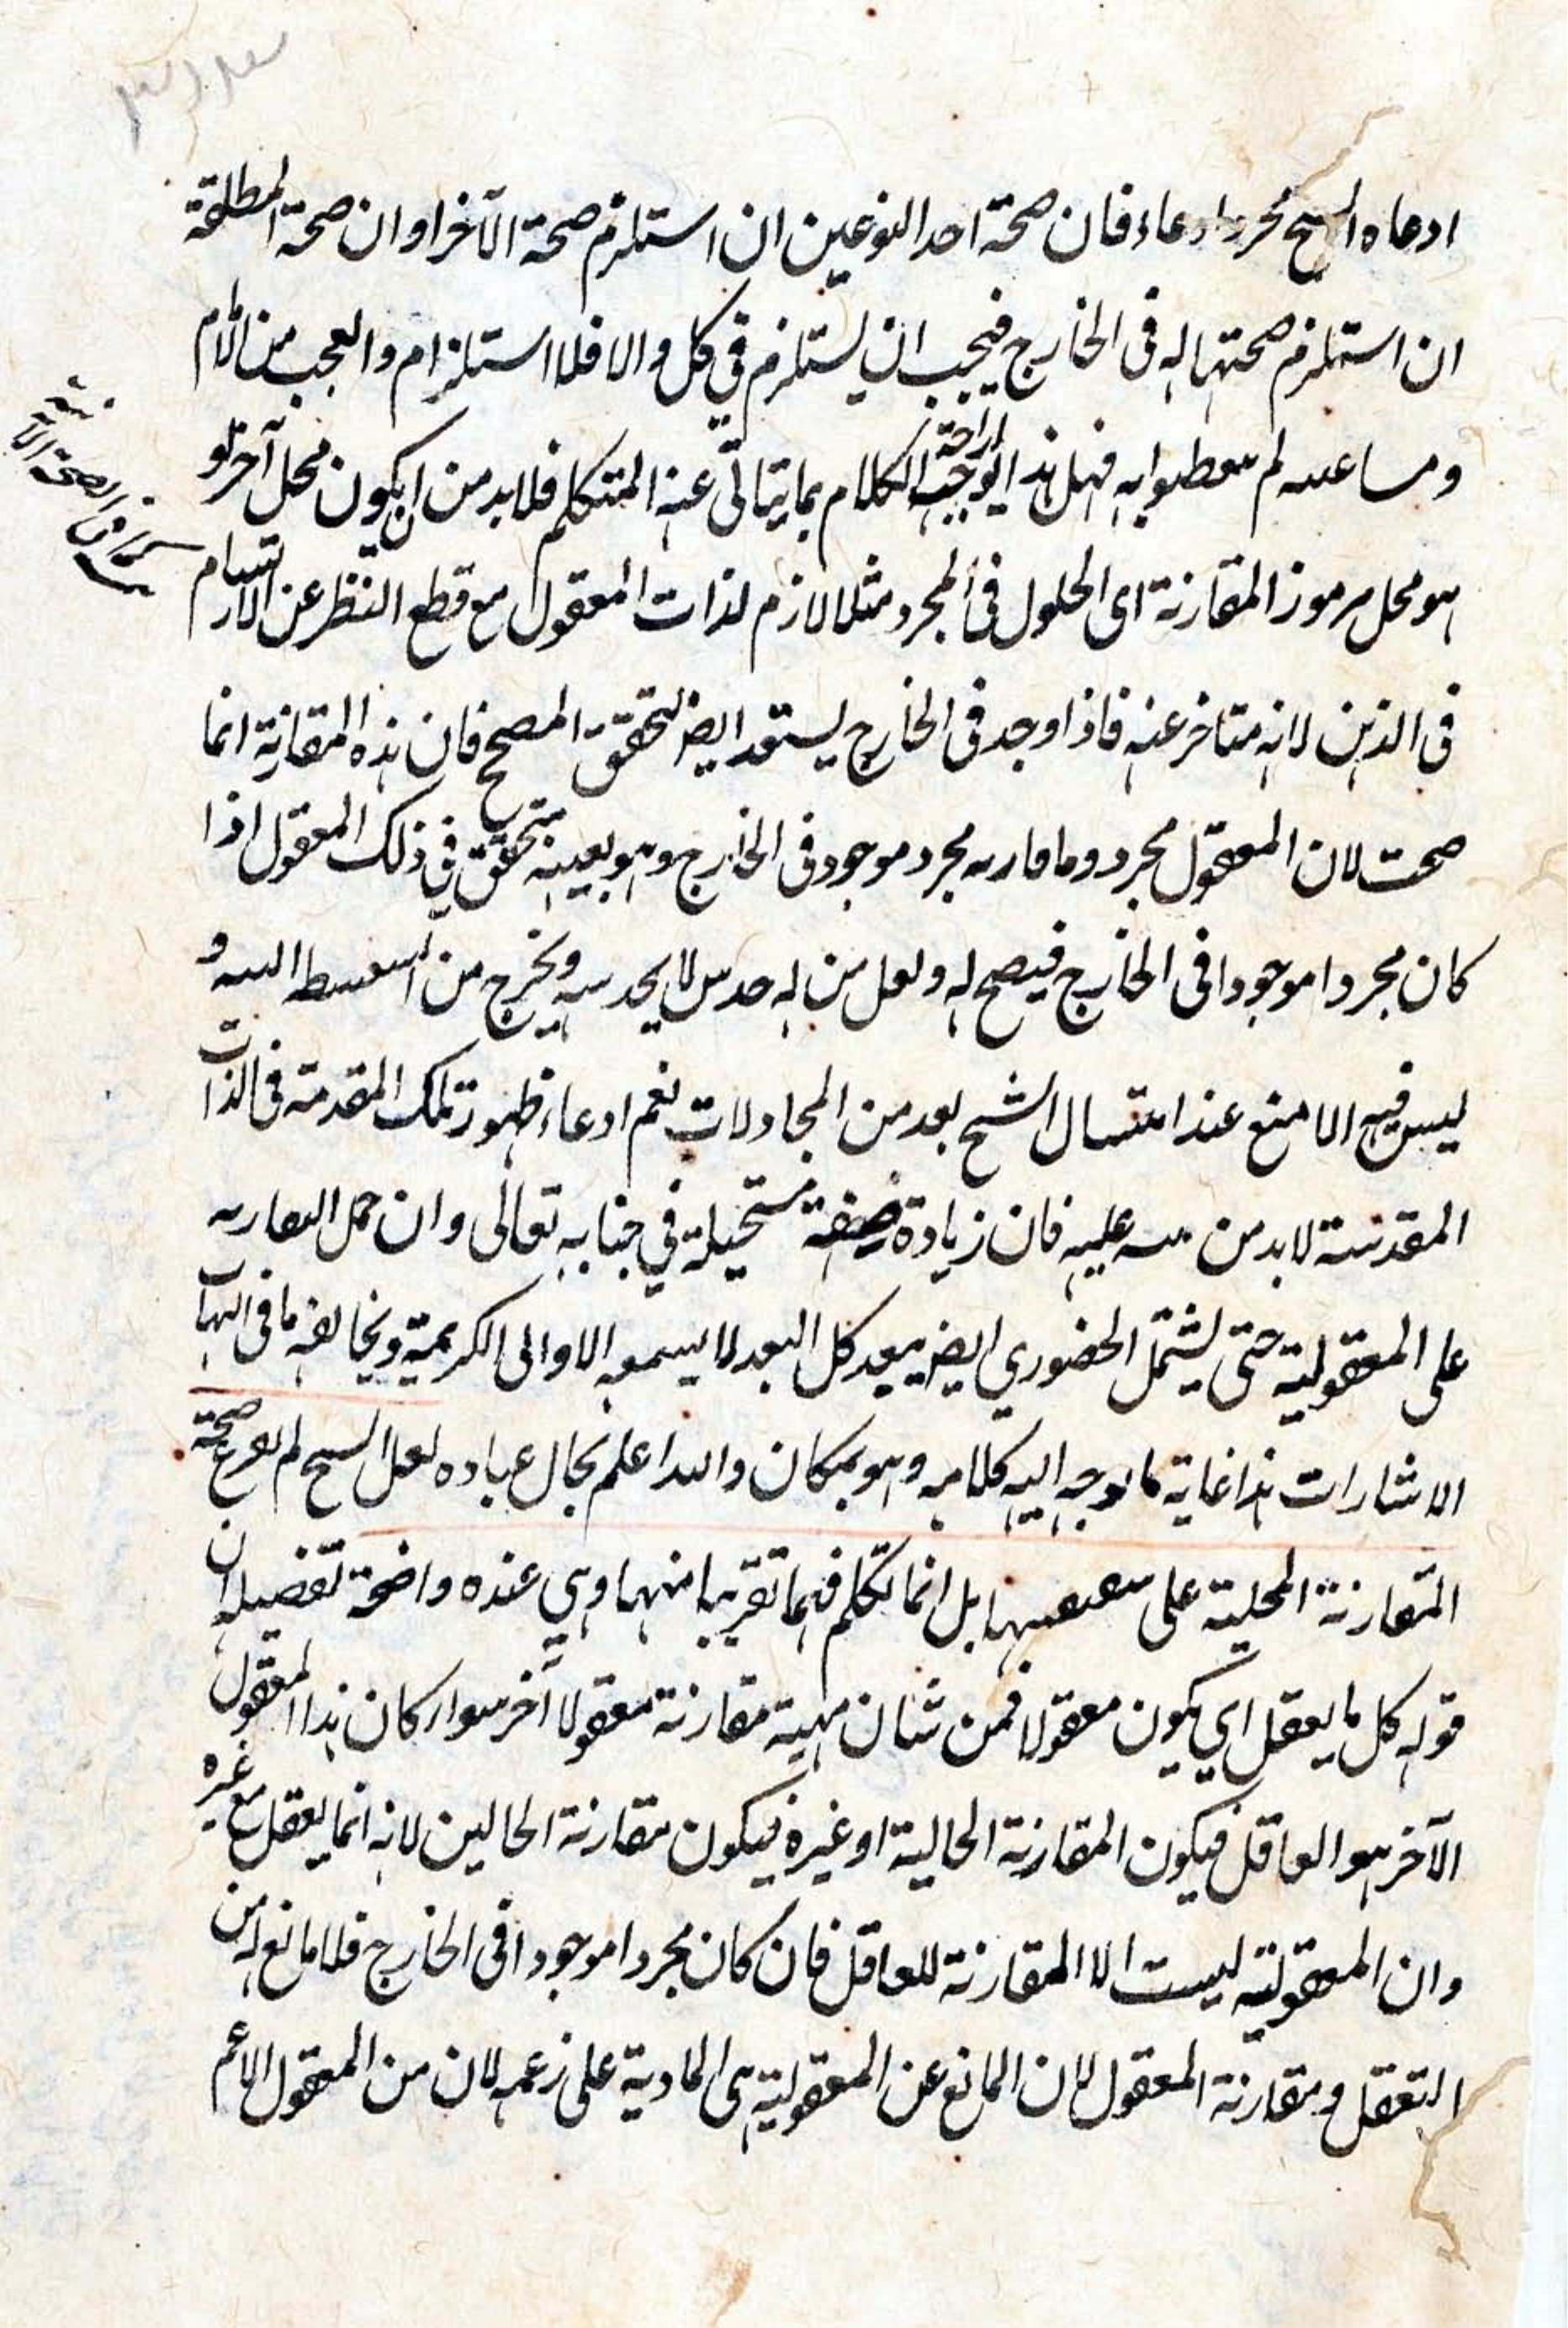 ادعاه الشيخ مجرد ادعاء فان صحة احد النوعين ان استلزم صحة الآخر او ان صحة المطلقة
ان استلزم صحتها له فى الخارج فيجب ان يستلزم في كل والا فلا استلزام والعجب من الامام
لم به فهل هذا الكلام بما عنه المتكلم فلا بد من ان يكون محل آخر
هو محل مرموز المقارنة اى الحلول فى المجرد مثلا لازم لذات المعقول مع قطع النظر عن الارتسام
فى الذهن لانه متاخر عنه فاذا وجد فى الخارج يستعد ايض لتحقق المصحح فان هذه المقارنة انما
صحت لان المعقول مجرد وما قارنه مجرد موجود فى الخارج وهو بعينه متحقق في ذلك المعقول اذا
كان مجردا موجودا فى الخارج فيصح له ولعل من له حدس لا يحدسه ويخرج من و
ليس فيه الا منع عند الشيخ بعد من المجادلات نعم ادعاء ظهور تلك المقدمة فى الذات
المقدسة لا بد من عليه فان زيادة صفة مستحيلة في جنابه تعالى وان حمل المقارنه
على المعقولية حتى يشتمل الحضوري ايض يبعد كل البعد لا الكريمة ويخالفه ما فى الهيات
الاشارات هذا غاية ما يوجه اليه كلامه وهو بمكان والله اعلم بحال عباده لعل الشيخ لم يفرع صحة
المقارنة المحلية على بل انما تكلم فيهما تقريبا منهما وهي عنده واضحة تفصيله ان
قوله كل ما يعقل اي يكون معقولا فمن شان مهية مقارنة معقولا آخر سواء كان هذا المعقول
الآخر هو العاقل فيكون المقارنة الحالية او غيره فيكون مقارنة الحالين لانه انما يعقل مع غيره
وان المعقولية ليست الا المقارنة للعاقل فان كان مجردا موجودا فى الخارج فلا مانع له من
التعقل ومقارنة المعقول لان المانع عن المعقولية هى المادية على زعمه لان من المعقول الاعم